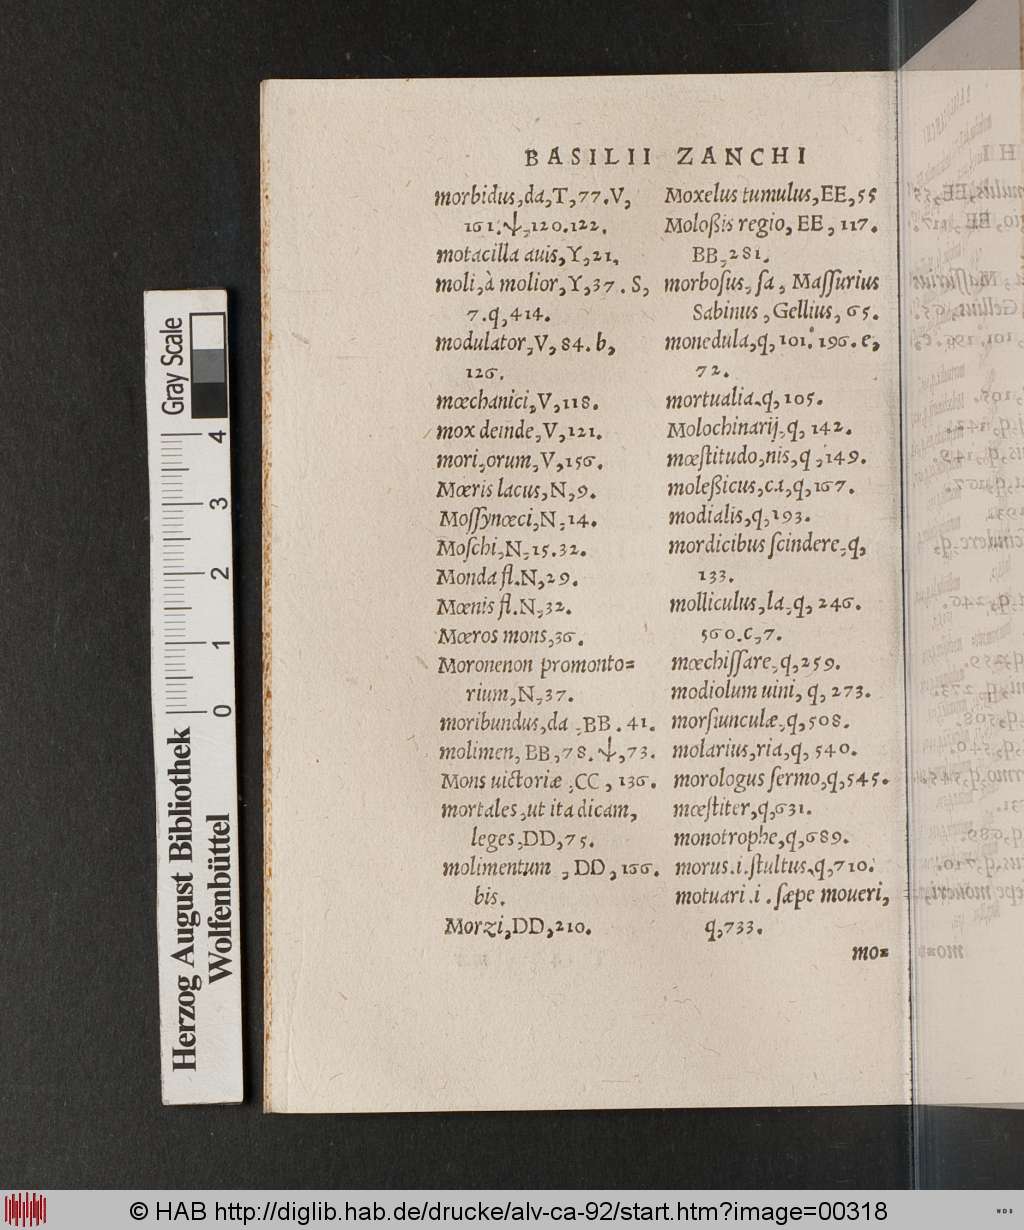 BASILII ZANCHI
morbidus,da,T,77.V,
161.ψ,120.122.
motacilla auis,Y,21.
moli,à molior,Y,37. S,
7.q,414.
modulator,V, 84. b,
126.
mœchanici,V,118.
mox deinde,V,121.
mori,orum,V,156.
Mœris lacus,N,9.
Moſſynœci,N,14.
Moſchi,N,15.32.
Monda fl.N,29.
Mœnis fl.N,32.
Mœros mons,36.
Moronenon promonto=
rium,N,37.
moribundus,da ,BB. 41.
molimen,BB,78.ψ,73.
Mons uictoriæ ,CC, 136.
mortales,ut ita dicam,
leges,DD,75.
molimentum , DD,166.
bis.
Morzi,DD,210.
Moxelus tumulus,EE,55
Moloßis regio, EE, 117.
BB,281.
morboſus, ſa, Maſſurius
Sabinus, Gellius, 65.
monedula,q,101.196. e,
72.
mortualia.q,105.
Molochinarij,q, 142.
mœſtitudo,nis,q,149.
moleßicus,ca,q,167.
modialis,q,193.
mordicibus ſcindere,q,
133.
molliculus,la,q, 246.
560.C,7.
mœchiſſare,q,259.
modiolum uini, q, 273.
morſiunculæ,q,508.
molarius,ria,q, 540.
morologus ſermo,q,545.
mœſtiter,q,631.
monotrophe,q,689.
morus.i.ſtultus,q,710.
motuari.i. ſæpe moueri,
q,733.
mo=
Gray Scale
4
3
2
1
0
Herzog August Bibliothek
Wolfenbüttel
© HAB http://diglib.hab.de/drucke/alv-ca-92/start.htm?image=00318
WDB